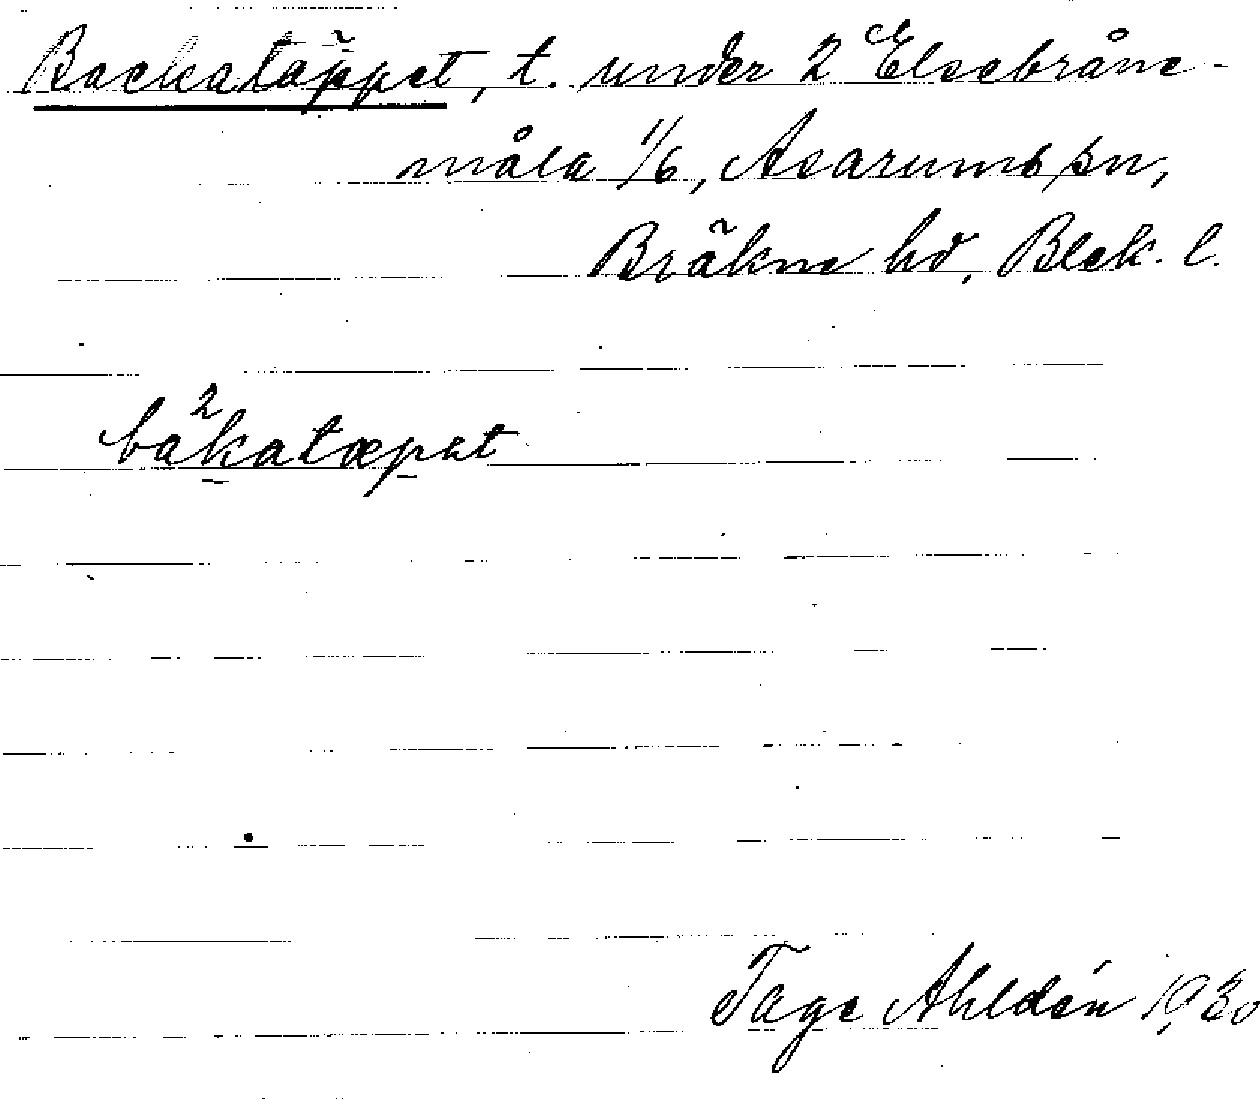 Backatäppet, t. under 2 Elsebråne-
måla 1/6, Asarums sn,
Bräkne hd, Blek. l.
ba²katæpet
Tage Ahldén 1930